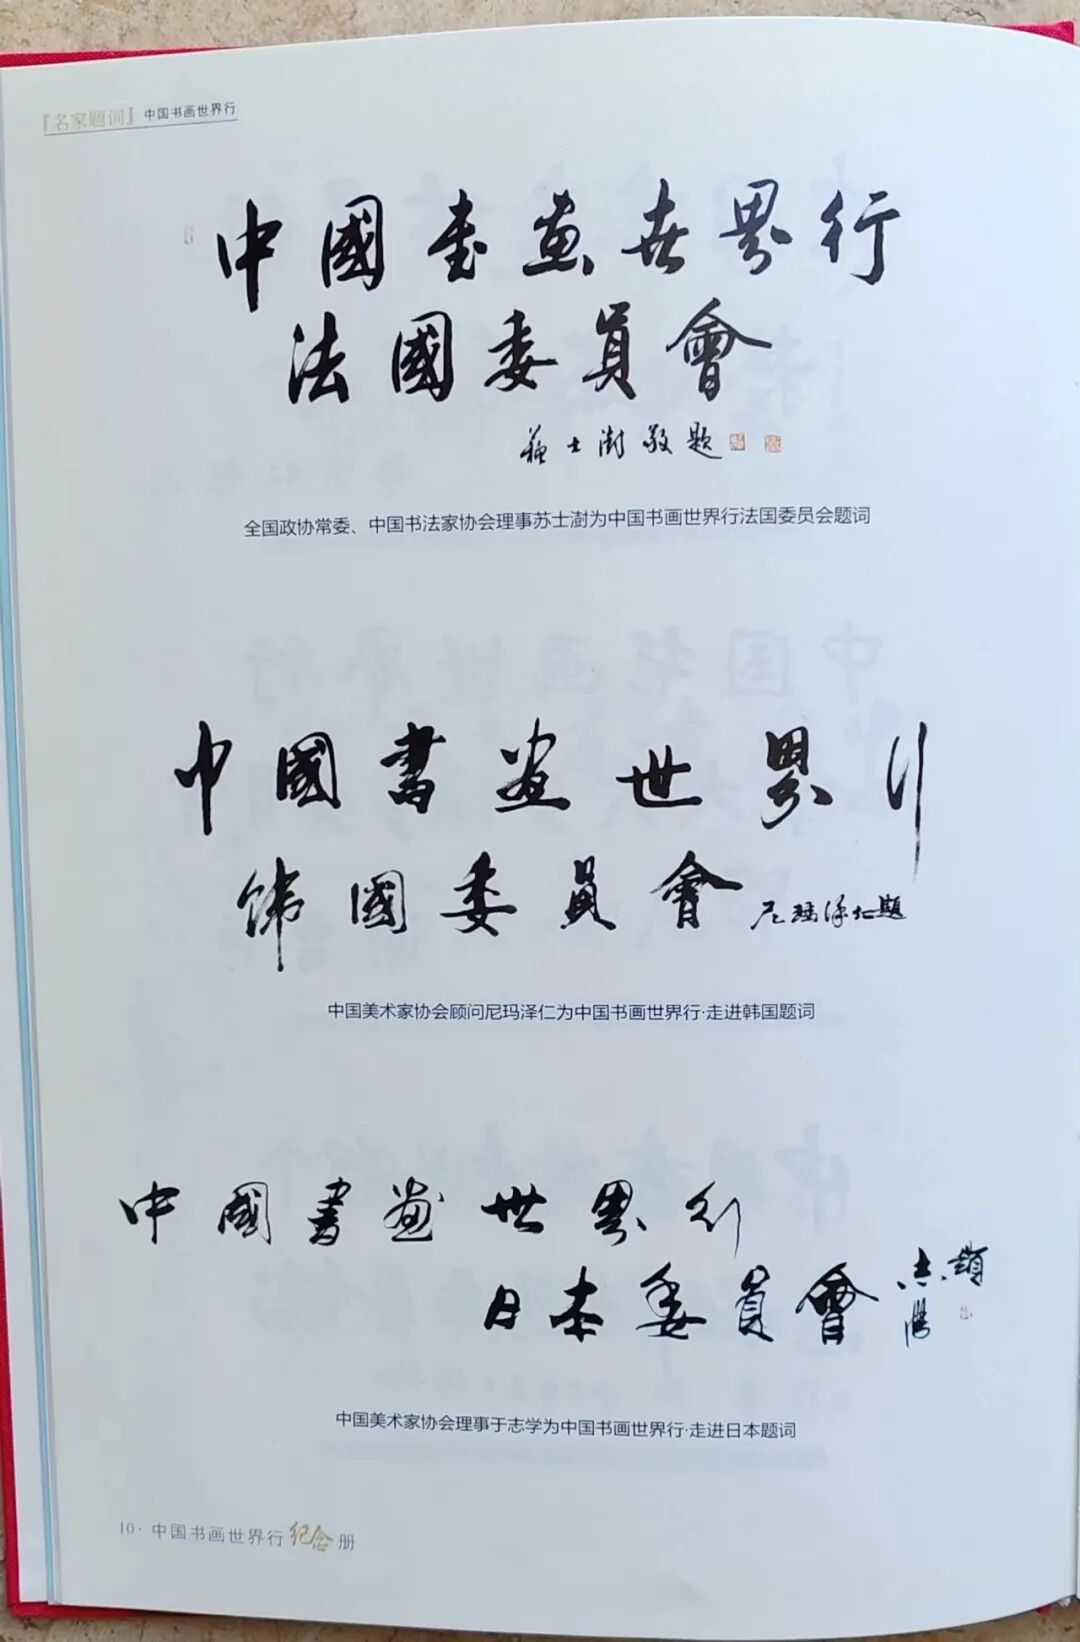 『名家题词』中国书画世界行
中國書畫世界行
法國委員會
蘇士澍敬題
全国政协常委、中国书法家协会理事苏士澍为中国书画世界行法国委员会题词
中國書畫世界行
韩國委員會 尼玛泽仁題
中国美术家协会顾问尼玛泽仁为中国书画世界行·走进韩国题词
中國書畫世界行
日本委員會 志學題
中国美术家协会理事于志学为中国书画世界行·走进日本题词
10·中国书画世界行纪念册